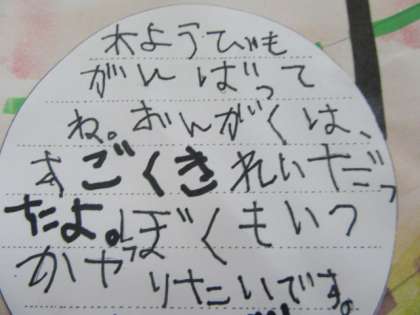 木ようびも
がんばって
ね。おんがくは、
すごくきれいだっ
たよ。ぼくもいつ
かやりたいです。